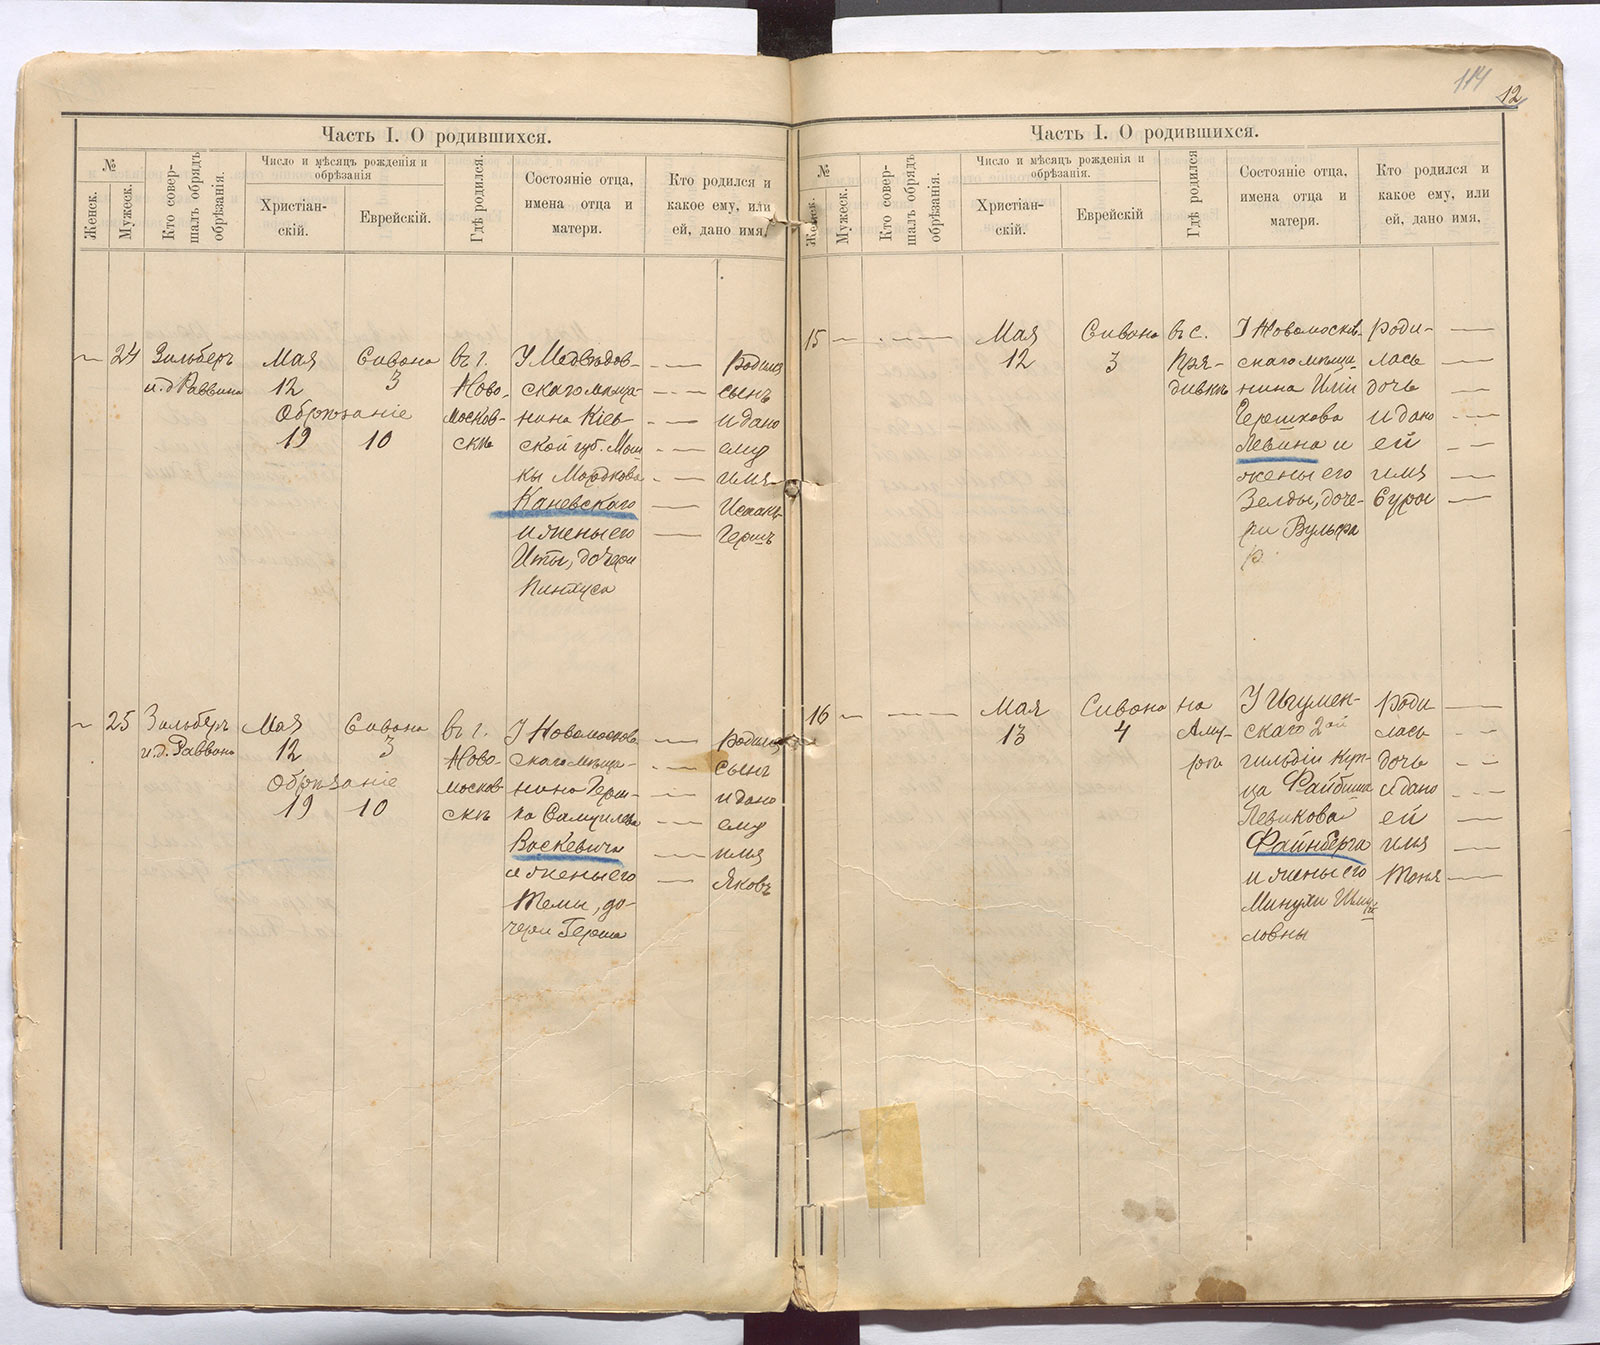 114
12
Часть I. О родившихся.
№
Женск.
Мужеск.
Кто совер-
шалъ обрядъ
обрѣзанія.
Число и мѣсяцъ рожденія и
обрѣзанія
Христіан-
скій.
Еврейскій.
Гдѣ родился.
Состояніе отца,
имена отца и
матери.
Кто родился и
какое ему, или
ей, дано имя.
24
Зильберъ
и.д Раввина
Мая
12
Обрѣзаніе
19
Сивона
3
10
въ г.
Ново-
москов-
скѣ
У Медвѣдов-
скаго мѣща-
нина Кіев-
ской губ. Мош
ки Мордкова
Каневскаго
и жены его
Иты, дочери
Пинхуса
родился
сынъ
и дано
ему
имя
Исаакъ
Гершъ
25
Зильберъ
и.д. Раввина
Мая
12
Обрѣзаніе
19
Сивона
3
10
въ г.
Ново-
москов
скѣ
У Новомосков
скаго мѣща-
нина Герш-
ка Самуилева
Васкевича
и жены его
Темы, до-
чери Герша
родился
сынъ
и дано
ему
имя
Яковъ
Часть I. О родившихся.
№
Женск.
Мужеск.
Кто совер-
шалъ обрядъ
обрѣзанія.
Число и мѣсяцъ рожденія и
обрѣзанія.
Христіан-
скій.
Еврейскій
Гдѣ родился
Состояніе отца,
имена отца и
матери.
Кто родился и
какое ему, или
ей, дано имя.
15
Мая
12
Сивона
3
въ с.
Пря-
дивкѣ
У Новомосков-
скаго мѣща-
нина Иліи
Гершкова
Левина и
жены его
Зелды, доче-
ри Вульфа
роди-
лась
дочь
и дано
ей
имя
Сура
16
Мая
13
Сивона
4
на
Аму-
рѣ
У Игумен-
скаго 2ой
гильдіи куп-
ца Файбиша
Левикова
Файнберга
и жены его
Минухи
ловны
роди
лась
дочь
и дано
ей
имя
Таня